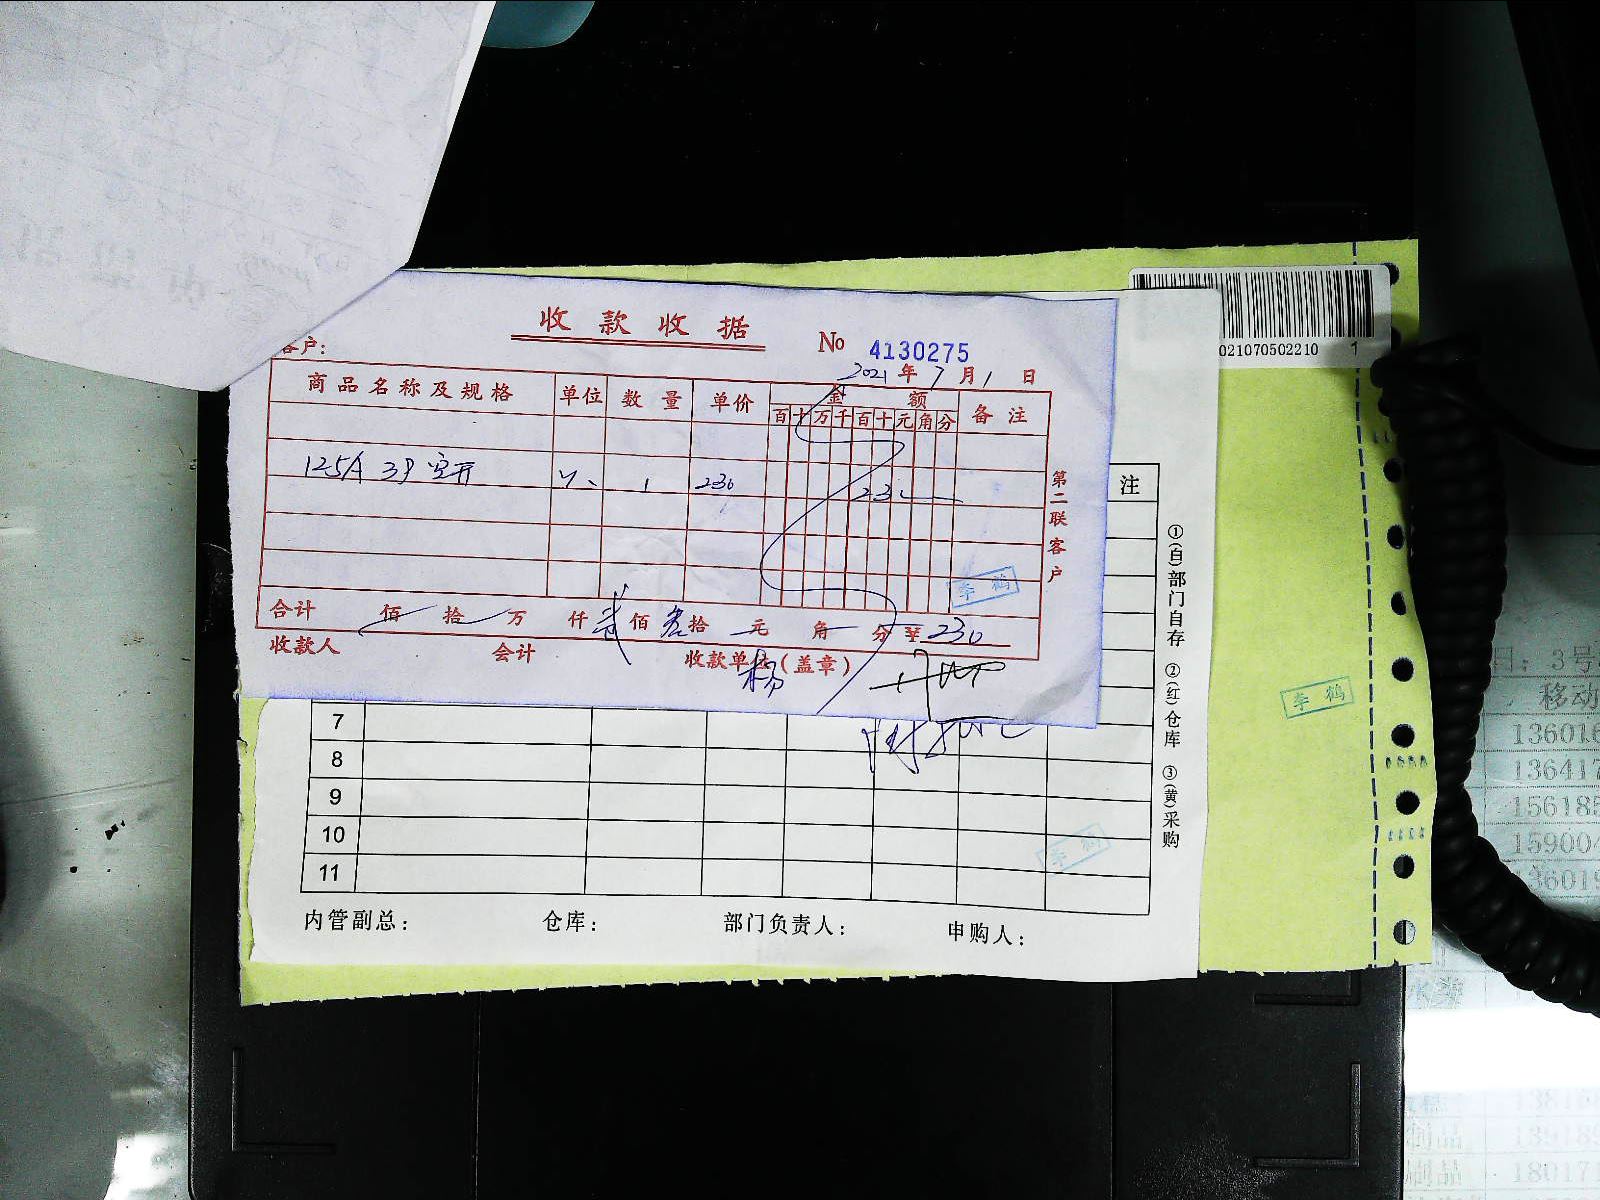 收款收据
No 4130275
客户:
2021年7月1日
商品名称及规格 单位 数量 单价 金额 备注
百十万千百十元角分
125A 3P 空开 个 1 230 230
第二联客户
李鹤
合计 佰 拾 万 仟 贰佰 叁拾 元 角 分 ¥230
收款人 会计 收款单位(盖章)
杨
021070502210 1
注
①(白)部门自存 ②(红)仓库 ③(黄)采购
7
8
9
10
11
李鹤
内管副总: 仓库: 部门负责人: 申购人:
李鹤
3号
移动
13601
13641
15618
15900
13601